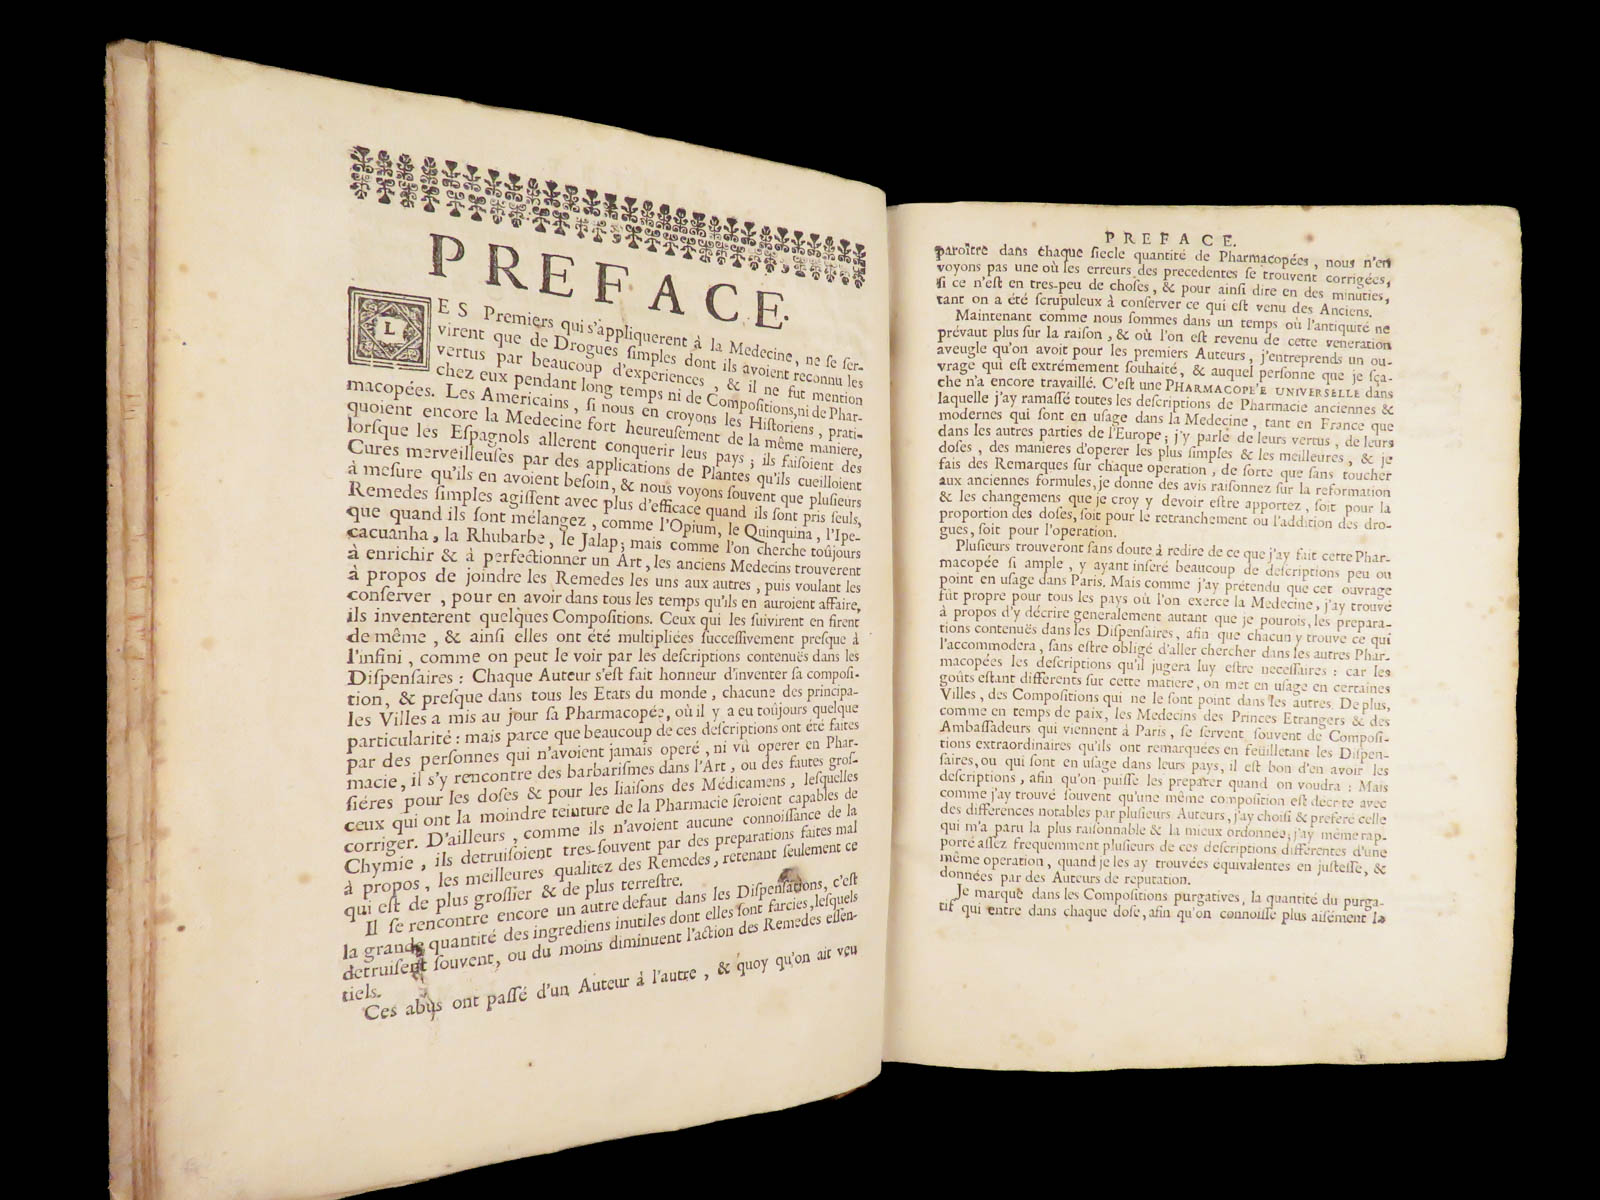 PREFACE.
LES Premiers qui s'appliquerent à la Medecine, ne se ser-
virent que de Drogues simples dont ils avoient reconnu les
vertus par beaucoup d'experiences, & il ne fut mention
chez eux pendant long temps ni de Compositions, ni de Phar-
macopées. Les Américains, si nous en croyons les Historiens, prati-
quoient encore la Medecine fort heureusement de la même maniere,
lorsque les Espagnols allerent conquerir leus pays; ils faisoient des
Cures merveilleuses par des applications de Plantes qu'ils cueilloient
à mesure qu'ils en avoient besoin, & nous voyons souvent que plusieurs
Remedes simples agissent avec plus d'efficace quand ils sont pris seuls,
que quand ils sont mélangez, comme l'Opium, le Quinquina, l'Ipe-
cacuanha, la Rhubarbe, le Jalap; mais comme l'on cherche toûjours
à enrichir & à perfectionner un Art, les anciens Medecins trouverent
à propos de joindre les Remedes les uns aux autres, puis voulant les
conserver, pour en avoir dans tous les temps qu'ils en auroient affaire,
ils inventerent quelques Compositions. Ceux qui les suivirent en firent
de même, & ainsi elles ont été multipliées successivement presque à
l'infini, comme on peut le voir par les descriptions contenuës dans les
Dispensaires: Chaque Auteur s'est fait honneur d'inventer sa composi-
tion, & presque dans tous les Etats du monde, chacune des principa-
les Villes a mis au jour sa Pharmacopée, où il y a eu toûjours quelque
particularité: mais parce que beaucoup de ces déscriptions ont été faites
par des personnes qui n'avoient jamais operé, ni vû operer en Phar-
macie, il s'y rencontre des barbarismes dans l'Art, ou des fautes gros-
siéres pour les doses & pour les liaisons des Médicamens, lesquelles
ceux qui ont la moindre teinture de la Pharmacie seroient capables de
corriger. D'ailleurs, comme ils n'avoient aucune connoissance de la
Chymie, ils detruisoient tres-souvent par des preparations faites mal
à propos, les meilleures qualitez des Remedes, retenant seulement ce
qui est de plus grossier & de plus terrestre.
Il se rencontre encore un autre defaut dans les Dispensations, c'est
la grande quantité des ingrediens inutiles dont elles sont farcies, lesquels
detruisent souvent, ou du moins diminuent l'action des Remedes essen-
tiels.
Ces abus ont passé d'un Auteur à l'autre, & quoy qu'on ait veu
PREFACE.
paroître dans chaque siecle quantité de Pharmacopées, nous n'en
voyons pas une où les erreurs des precedentes se trouvent corrigées,
si ce n'est en tres-peu de choses, & pour ainsi dire en des minuties,
tant on a été scrupuleux à conserver ce qui est venu des Anciens.
Maintenant comme nous sommes dans un temps où l'antiquité ne
prévaut plus sur la raison, & où l'on est revenu de cette veneration
aveugle qu'on avoit pour les premiers Auteurs, j'entreprends un ou-
vrage qui est extrémement souhaité, & auquel personne que je sça-
che n'a encore travaillé. C'est une PHARMACOPE'E UNIVERSELLE dans
laquelle j'ay ramassé toutes les descriptions de Pharmacie anciennes &
modernes qui sont en usage dans la Medecine, tant en France que
dans les autres parties de l'Europe; j'y parle de leurs vertus, de leurs
doses, des manieres d'operer les plus simples & les meilleures, & je
fais des Remarques sur chaque operation, de sorte que sans toucher
aux anciennes formules, je donne des avis raisonnez sur la reformation
& les changemens que je croy y devoir estre apportez, soit pour la
proportion des doses, soit pour le retranchement ou l'addition des dro-
gues, soit pour l'operation.
Plusieurs trouveront sans doute à redire de ce que j'ay fait cette Phar-
macopée si ample, y ayant inseré beaucoup de descriptions peu ou
point en usage dans Paris. Mais comme j'ay prétendu que cet ouvrage
fût propre pour tous les pays où l'on exerce la Medecine, j'ay trouvé
à propos d'y décrire generalement autant que je pourois, les prepara-
tions contenuës dans les Dispensaires, afin que chacun y trouve ce qui
l'accommodera, sans estre obligé d'aller chercher dans les autres Phar-
macopées les descriptions qu'il jugera luy estre necessaires: car les
goûts estant differents sur cette matiere, on met en usage en certaines
Villes, des Compositions qui ne le sont point dans les autres. De plus,
comme en temps de paix, les Medecins des Princes Etrangers & des
Ambassadeurs qui viennent à Paris, se servent souvent de Composi-
tions extraordinaires qu'ils ont remarquées en feuilletant les Dispen-
saires, ou qui sont en usage dans leurs pays, il est bon d'en avoir les
descriptions, afin qu'on puisse les preparer quand on voudra: Mais
comme j'ay trouvé souvent qu'une même composition est décrite avec
des differences notables par plusieurs Auteurs, j'ay choisi & preferé celle
qui m'a paru la plus raisonnable & la mieux ordonnée; j'ay même rap-
porté assez frequemment plusieurs de ces descriptions differentes d'une
même operation, quand je les ay trouvées équivalentes en justesse, &
données par des Auteurs de reputation.
Je marque dans les Compositions purgatives, la quantité du purga-
tif qui entre dans chaque dose, afin qu'on connoisse plus aisément la